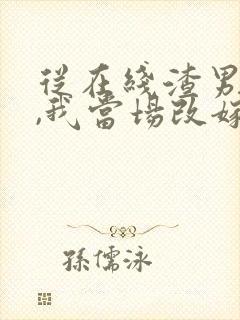 從在綫渣男
,我當場改嫁
孫儒泳